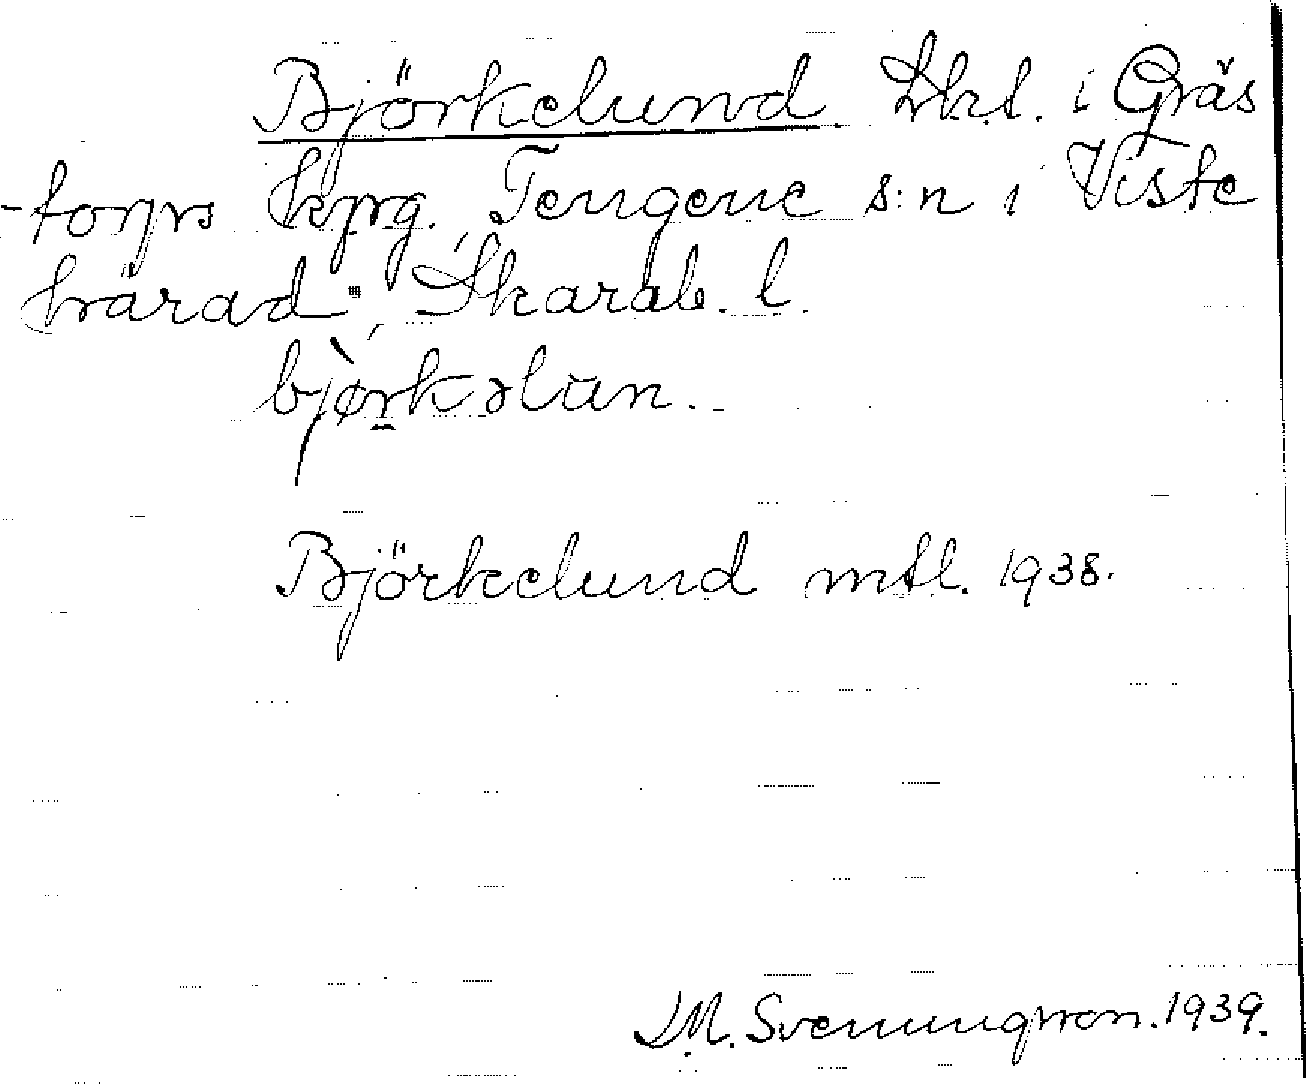 Björkelund Lkl. i Gräs
-torps kpg. Tengene s:n i Viste
härad, Skarab. l.
bjø̀rkəlun.
Björkelund mtl. 1938.
M. Svenungsson. 1939.